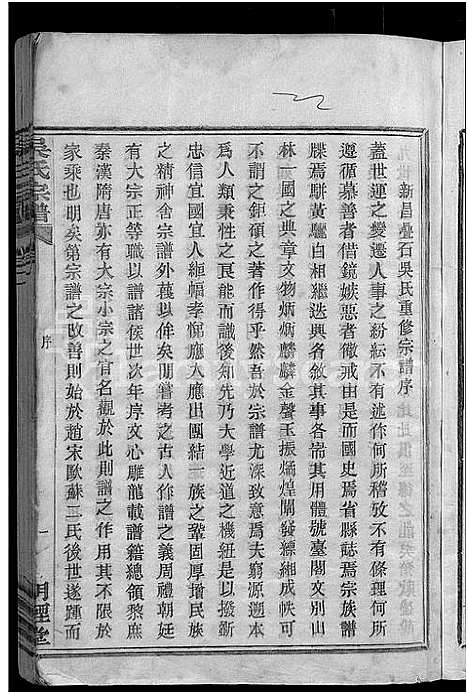 新昌疊石吳氏重修宗譜序
蓋世運之變遷人事之紛紜不有述作何所稽攷不有條理何所
遵循慕善者借鏡嫉惡者儆戒由是而國史焉省縣誌焉宗族譜
牒焉駢黃驪白相繼迭興各敘其事各摛其用體號臺閣文別山
林一國之典章文物炳炳麟麟金聲玉振燏煌闓發縹緗成帙可
不謂之鉅碩之著作得乎然吾於宗譜尤深致意焉夫窮源溯本
爲人類秉性之良能而識後知先乃大學近道之機紐是以撥新
忠信宜國宜人緬幅孝悌應人應出團結一族之鞏固厚增民族
之精神舍宗譜外蔑以侔矣閒嘗考之古人作譜之義周禮朝廷
有大宗正等職以譜諸侯世次年序文心雕龍載譜籍總領黎庶
秦漢隋唐亦有大宗小宗之官名觀於此則譜之作其不限於
家乘也明矣第宗譜之改善則始於趙宋歐蘇二氏後世遂踵而
吳氏宗譜
序
一
明經堂